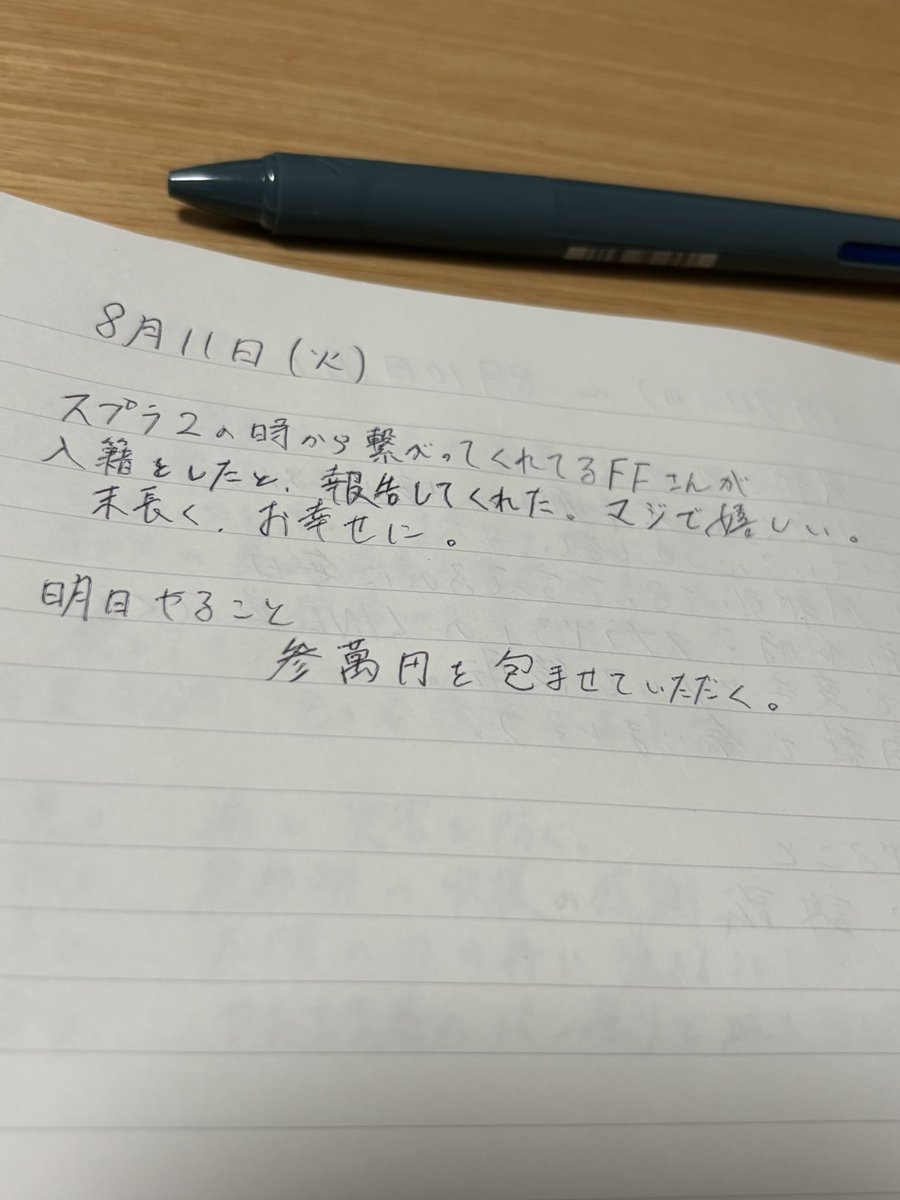 8月11日(火)
スプラ2の時から繋がってくれてるFFさんが
入籍をしたと、報告してくれた。マジで嬉しい。
末長く、お幸せに。
明日やること
参萬円を包ませていただく。